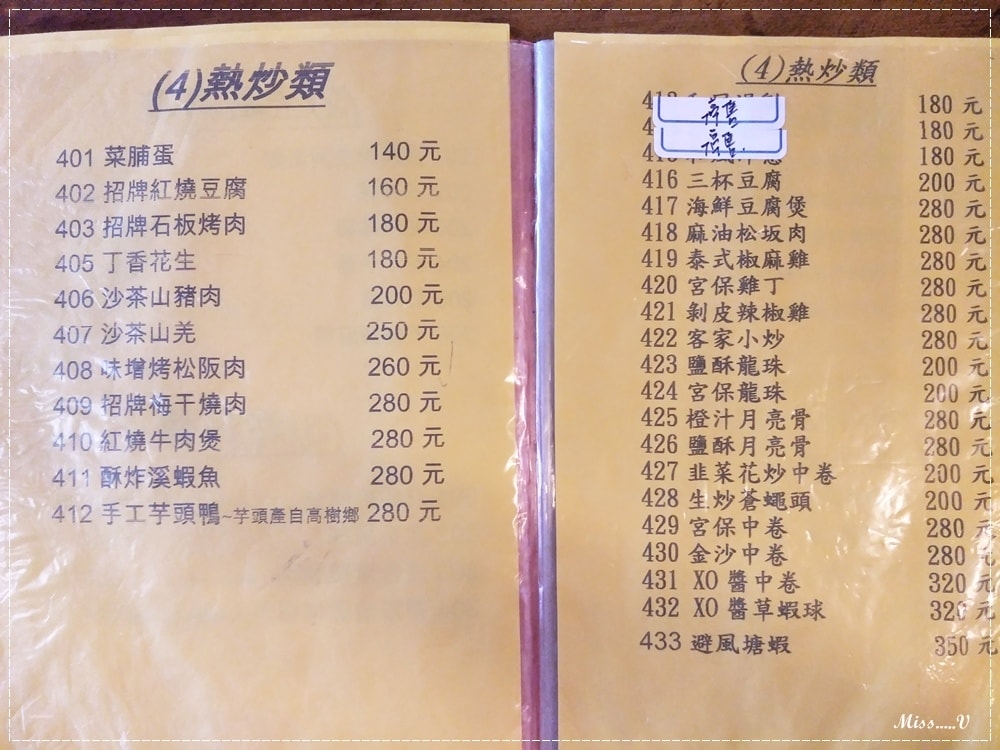 (4)熱炒類
401 菜脯蛋 140 元
402 招牌紅燒豆腐 160 元
403 招牌石板烤肉 180 元
405 丁香花生 180 元
406 沙茶山豬肉 200 元
407 沙茶山羌 250 元
408 味增烤松阪肉 260 元
409 招牌梅干燒肉 280 元
410 紅燒牛肉煲 280 元
411 酥炸溪蝦魚 280 元
412 手工芋頭鴨~芋頭產自高樹鄉 280 元
(4)熱炒類
180 元
停售
180 元
停售.
180 元
416 三杯豆腐 200 元
417 海鮮豆腐煲 280 元
418 麻油松坂肉 280 元
419 泰式椒麻雞 280 元
420 宮保雞丁 280 元
421 剝皮辣椒雞 280 元
422 客家小炒 280 元
423 鹽酥龍珠 200 元
424 宮保龍珠 200 元
425 橙汁月亮骨 280 元
426 鹽酥月亮骨 280 元
427 韭菜花炒中卷 200 元
428 生炒蒼蠅頭 200 元
429 宮保中卷 280 元
430 金沙中卷 280 元
431 XO 醬中卷 320 元
432 XO 醬草蝦球 320 元
433 避風塘蝦 350 元
Miss.....V